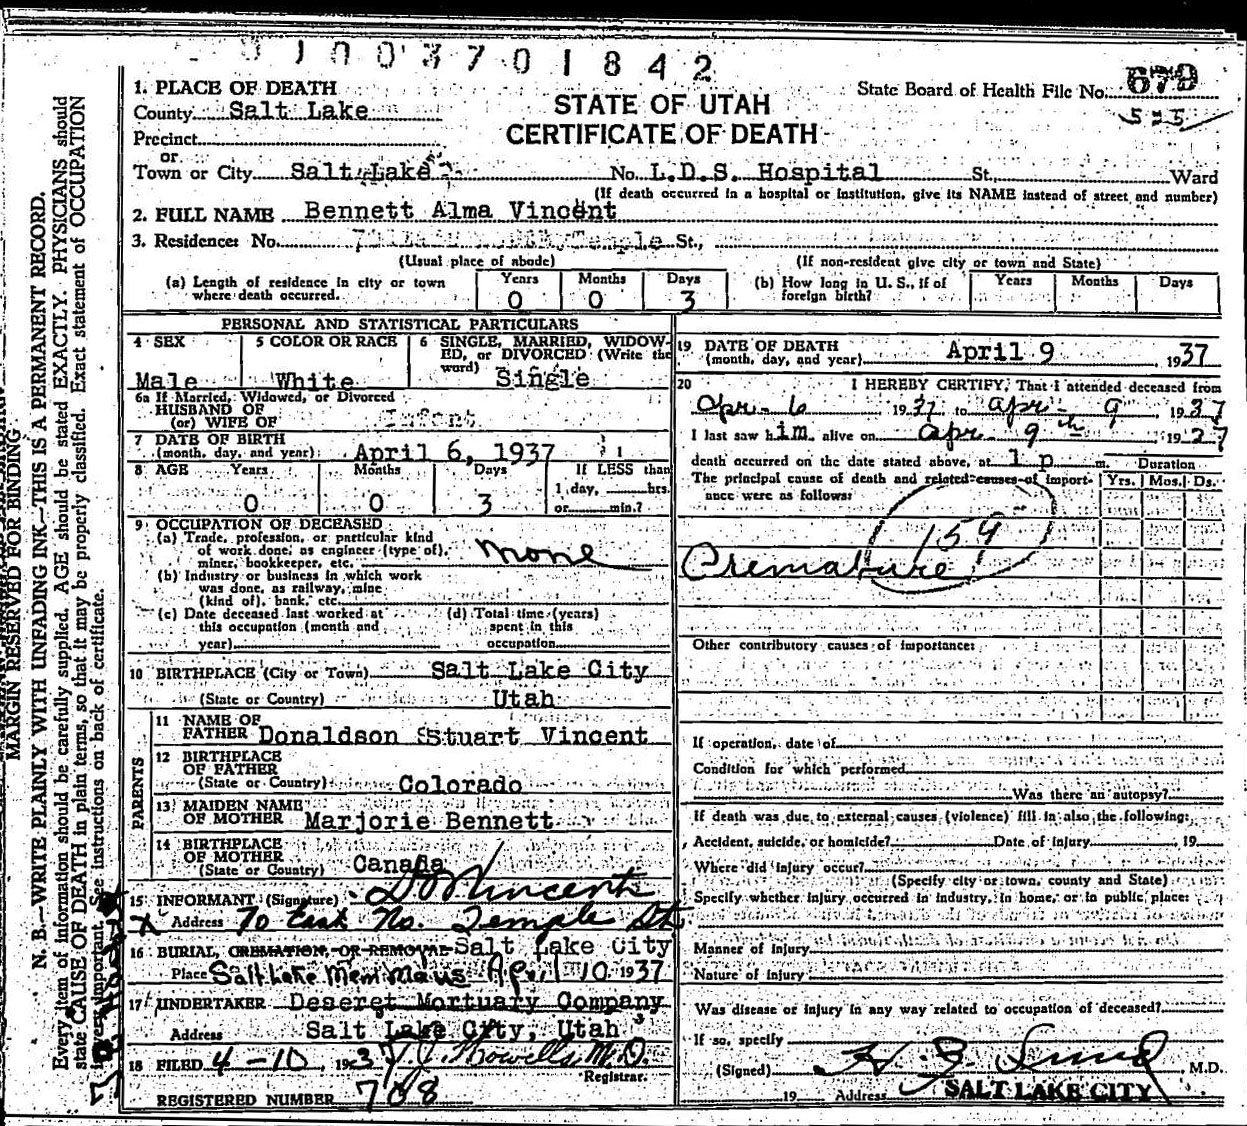 0100370 1842
1. PLACE OF DEATH
County Salt Lake
Precinct
or
Town or City Salt Lake No. L.D.S. Hospital St., Ward
(If death occurred in a hospital or institution, give its NAME instead of street and number)
STATE OF UTAH
CERTIFICATE OF DEATH
State Board of Health File No. 679
525
2. FULL NAME Bennett Alma Vincent
3. Residence: No. Temple St.,
(Usual place of abode) (If non-resident give city or town and State)
(a) Length of residence in city or town where death occurred. Years 0 Months 0 Days 3
(b) How long in U. S., if of foreign birth? Years Months Days
PERSONAL AND STATISTICAL PARTICULARS
4 SEX Male
5 COLOR OR RACE White
6 SINGLE, MARRIED, WIDOWED, or DIVORCED (Write the word) Single
6a If Married, Widowed, or Divorced
HUSBAND OF
(or) WIFE OF Infant
7 DATE OF BIRTH
(month, day, and year) April 6, 1937
8 AGE Years 0 Months 0 Days 3 If LESS than 1 day, hrs. or min.?
9 OCCUPATION OF DECEASED
(a) Trade, profession, or particular kind
of work done, as engineer (type of),
miner, bookkeeper, etc. none
(b) Industry or business in which work
was done, as railway, mine
(kind of), bank, etc.
(c) Date deceased last worked at this occupation (month and year)
(d) Total time (years) spent in this occupation
10 BIRTHPLACE (City or Town) Salt Lake City
(State or Country) Utah
PARENTS
11 NAME OF
FATHER Donaldson Stuart Vincent
12 BIRTHPLACE
OF FATHER
(State or Country) Colorado
13 MAIDEN NAME
OF MOTHER Marjorie Bennett
14 BIRTHPLACE
OF MOTHER
(State or Country) Canada
15 INFORMANT (Signature) D S Vincent
X Address 70 East No. Temple St
16 BURIAL, CREMATION, OR REMOVAL Salt Lake City
Place Salt Lake Mem Maus April 10 1937
17 UNDERTAKER Deseret Mortuary Company
Address Salt Lake City, Utah
18 FILED 4-10, 1937 Howells M.D.
Registrar.
REGISTERED NUMBER 708
19 DATE OF DEATH
(month, day, and year) April 9 1937
20 I HEREBY CERTIFY, That I attended deceased from
Apr- 6 1937 to Apr- 9, 1937
I last saw him alive on Apr 9th 1937
death occurred on the date stated above, at 1 p m. Duration
The principal cause of death and related causes of importance were as follows: Yrs. Mos. Ds.
159
Premature
Other contributory causes of importance:
If operation, date of
Condition for which performed
Was there an autopsy?
If death was due to external causes (violence) fill in also the following:
Accident, suicide, or homicide? Date of injury 19
Where did injury occur?
(Specify city or town, county and State)
Specify whether injury occurred in industry, in home, or in public place:
Manner of injury
Nature of injury
Was disease or injury in any way related to occupation of deceased?
If so, specify
(Signed) M.D.
19 Address SALT LAKE CITY
MARGIN RESERVED FOR BINDING
N. B.—WRITE PLAINLY WITH UNFADING INK—THIS IS A PERMANENT RECORD.
Every item of information should be carefully supplied. AGE should be stated EXACTLY. PHYSICIANS should
state CAUSE OF DEATH in plain terms, so that it may be properly classified. Exact statement of OCCUPATION
is very important. See instructions on back of certificate.